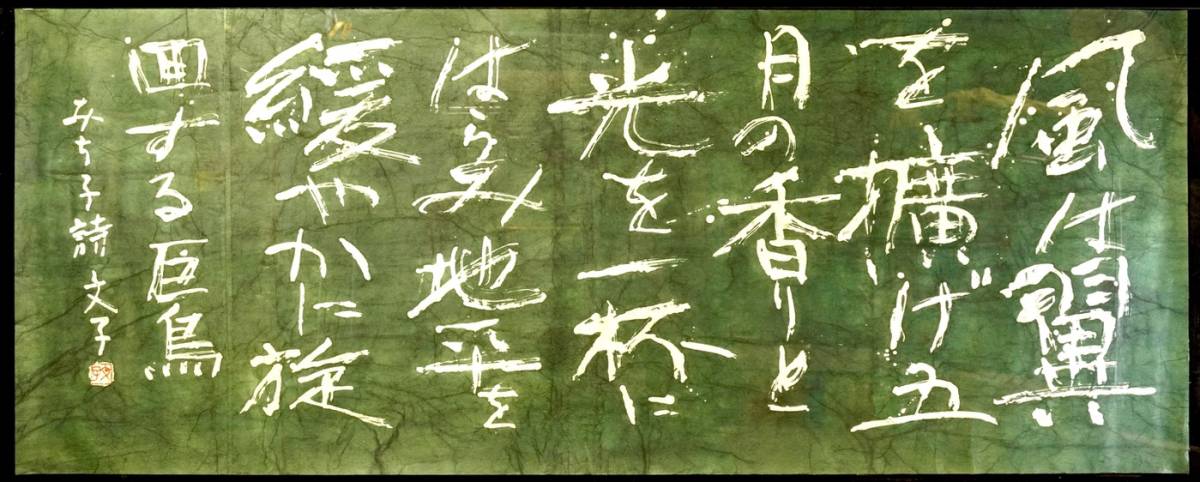 風は翼
を擴げ五
月の香りと
光を一杯に
はらみ地平を
緩やかに旋
回する巨鳥
みち子詩 文子